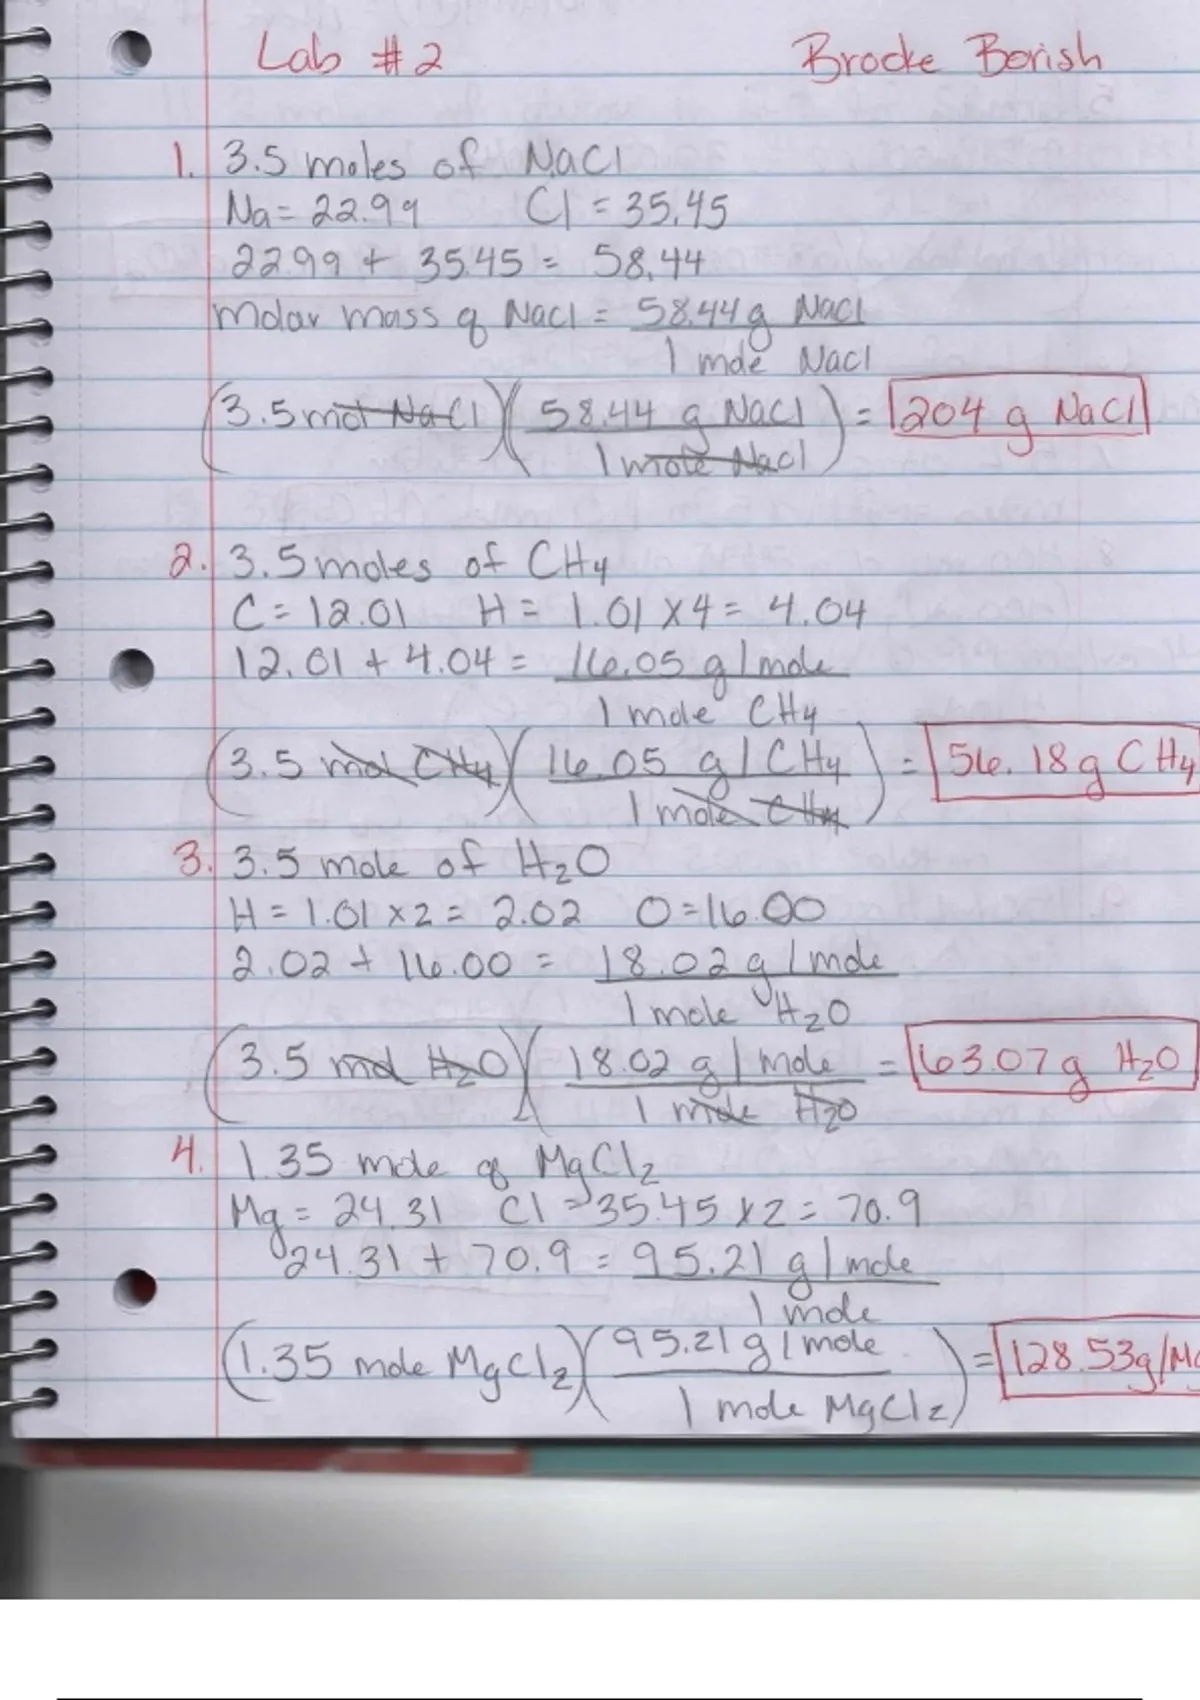 Lab #2 Brooke Borish
1. 3.5 moles of NaCl
Na = 22.99 Cl = 35.45
22.99 + 35.45 = 58.44
molar mass of NaCl = 58.44 g NaCl
1 mole NaCl
(3.5 mol NaCl)(58.44 g NaCl) = 204 g NaCl
1 mole NaCl
2. 3.5 moles of CH4
C = 12.01 H = 1.01 x 4 = 4.04
12.01 + 4.04 = 16.05 g/mole
1 mole CH4
(3.5 mol CH4)(16.05 g/CH4) = 56.18 g CH4
1 mole CH4
3. 3.5 mole of H2O
H = 1.01 x 2 = 2.02 O = 16.00
2.02 + 16.00 = 18.02 g/mole
1 mole H2O
(3.5 mol H2O)(18.02 g/mole = 63.07 g H2O
1 mole H2O
4. 1.35 mole of MgCl2
Mg = 24.31 Cl = 35.45 x 2 = 70.9
24.31 + 70.9 = 95.21 g/mole
1 mole
(1.35 mole MgCl2)(95.21 g/mole) = 128.53g/M
1 mole MgCl2